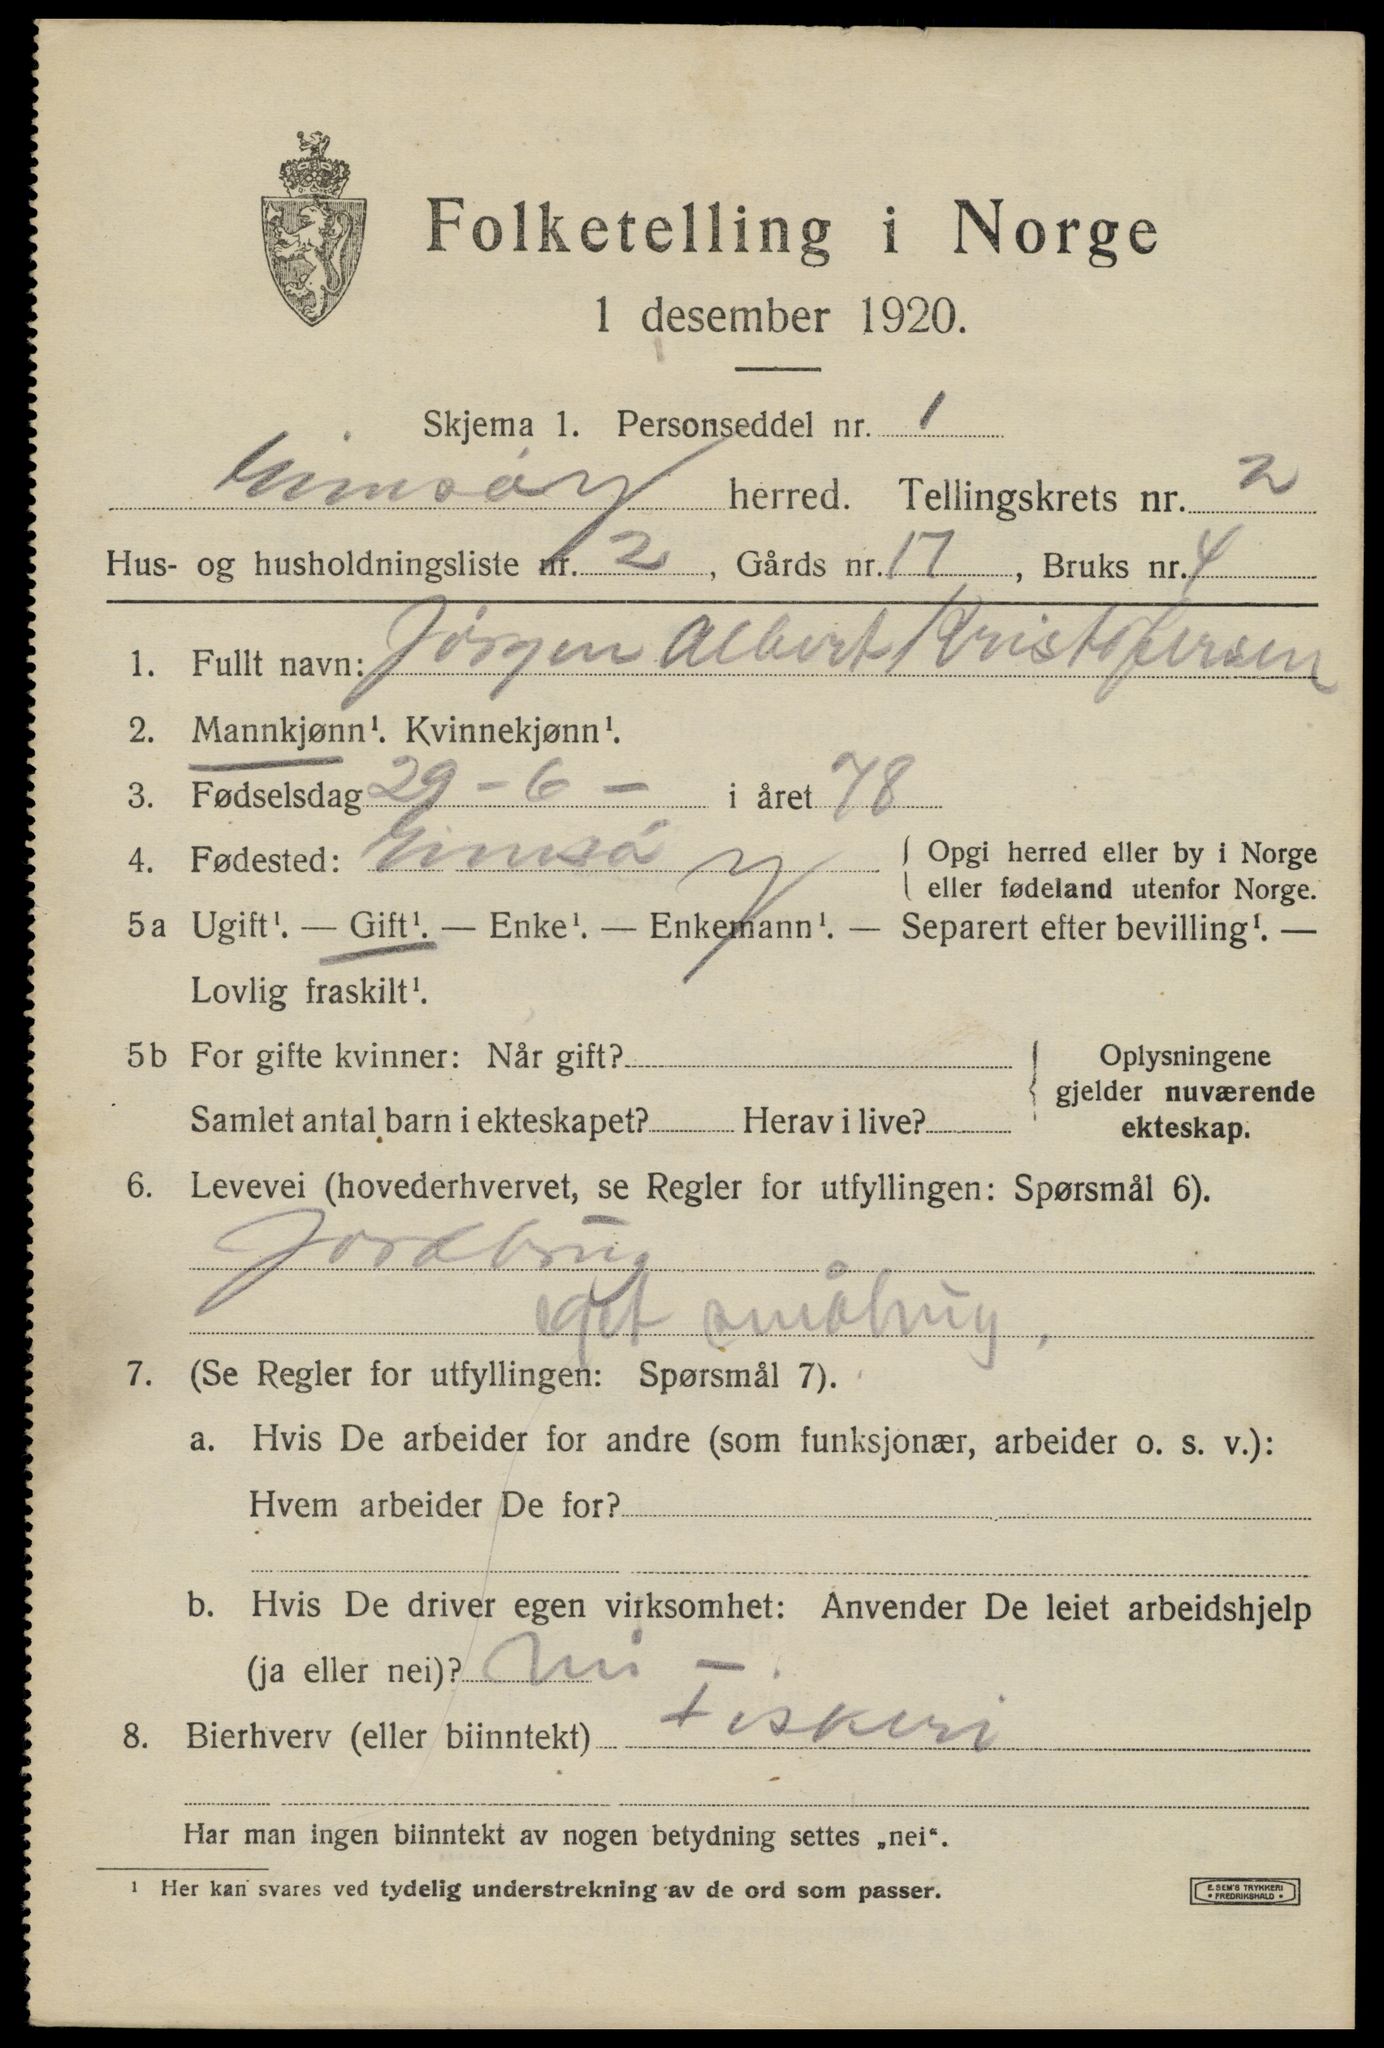 Folketelling i Norge
1 desember 1920.
Skjema 1. Personseddel nr. 1
Gimsøy herred. Tellingskrets nr. 2
Hus- og husholdningsliste nr. 2, Gårds nr. 17, Bruks nr. 4
1. Fullt navn: Jørgen Albert Kristofersen
2. Mannkjønn¹. Kvinnekjønn¹.
3. Fødselsdag 29 – 6 – i året 78
4. Fødested: Gimsøy { Opgi herred eller by i Norge
eller fødeland utenfor Norge.
5a Ugift¹. — Gift¹. — Enke¹. — Enkemann¹. — Separert efter bevilling¹. —
Lovlig fraskilt¹.
5b For gifte kvinner: Når gift? { Oplysningene
gjelder nuværende
Samlet antal barn i ekteskapet? Herav i live? ekteskap.
6. Levevei (hovederhvervet, se Regler for utfyllingen: Spørsmål 6).
Jordbrug
eget småbrug,
7. (Se Regler for utfyllingen: Spørsmål 7).
a. Hvis De arbeider for andre (som funksjonær, arbeider o. s. v.):
Hvem arbeider De for?
b. Hvis De driver egen virksomhet: Anvender De leiet arbeidshjelp
(ja eller nei)? nei
8. Bierhverv (eller biinntekt) Fiskeri
Har man ingen biinntekt av nogen betydning settes „nei“.
¹ Her kan svares ved tydelig understrekning av de ord som passer.
E. SEM'S TRYKKERI
• FREDRIKSHALD •